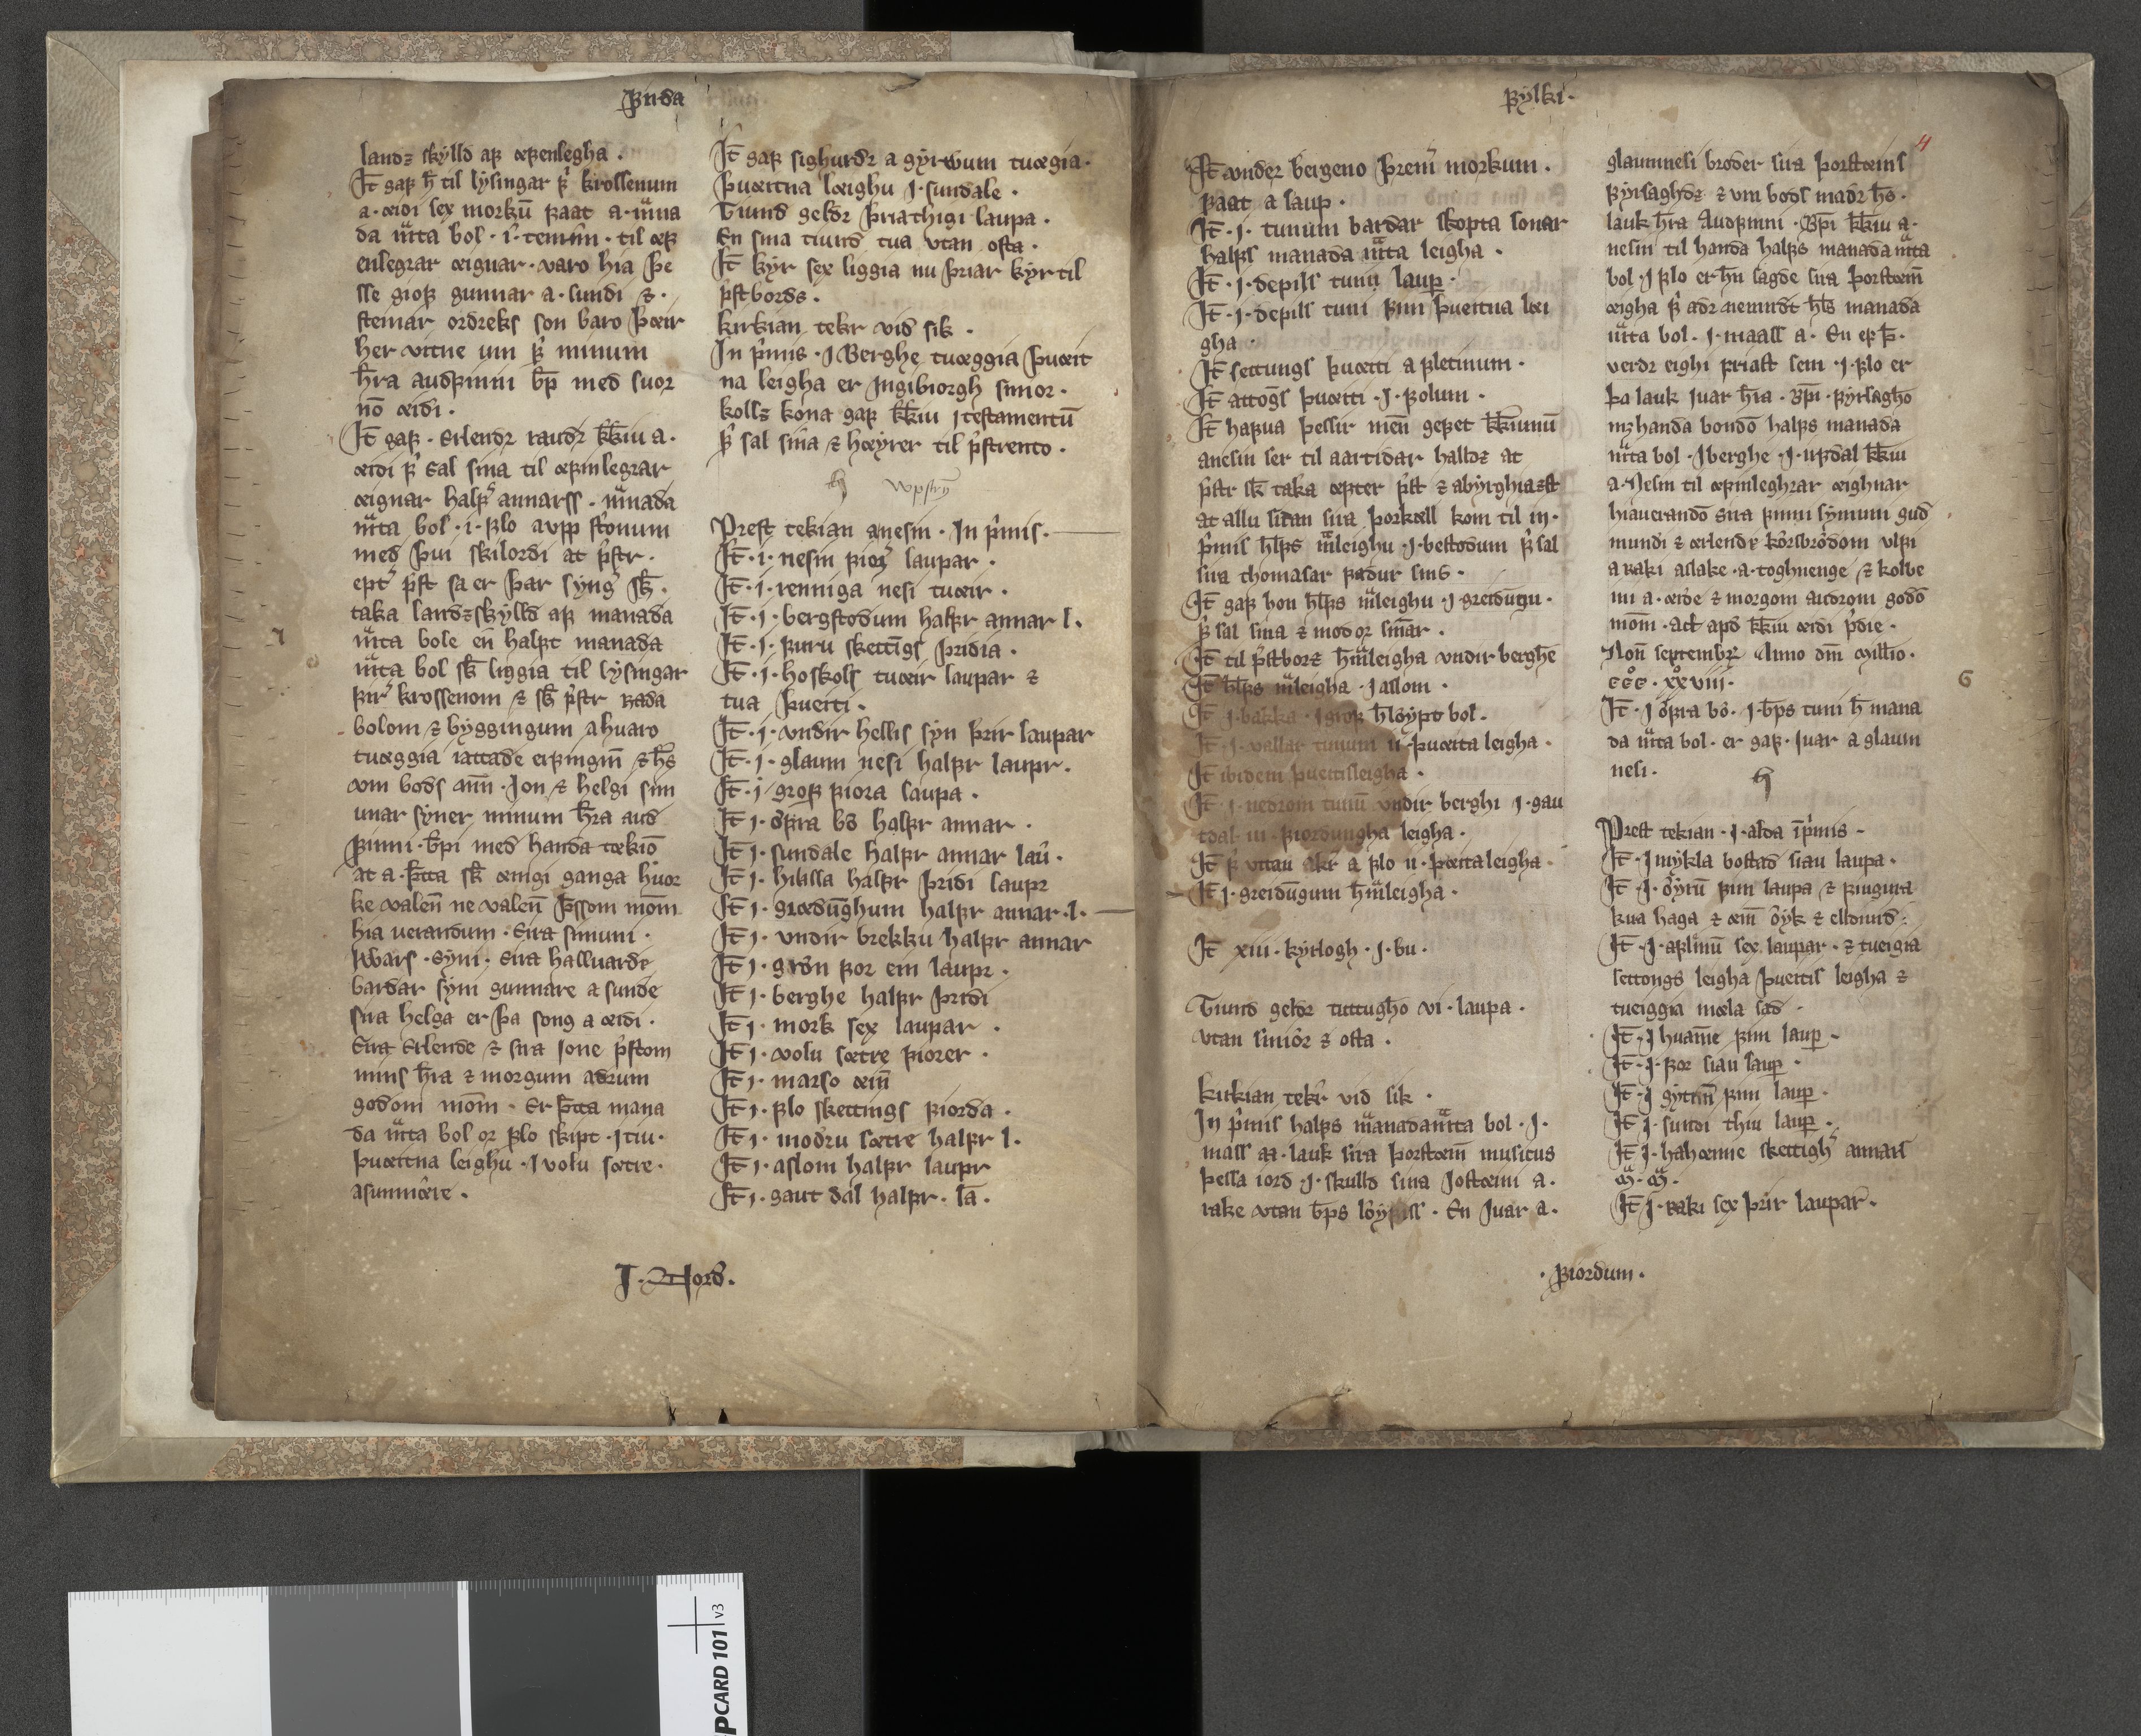 ꝼirda
landz skylld aꝼ œꝼenlegha .
Jt̄ gaꝼ h̄ til lysingar ꝼ' krossenum
a · œidi sex morkū raat a · mͣna
da mͣta bol · i · temmin · til œꝼ
enlegrar œignar · varo hia þe
sse gioꝼ gunnar a · sundi ⁊ ·
steinar ordreks son baro þœir
her vitne um ꝼ' minum
h̄ra audꝼinni b̄p med suor
nō œidi .
Jt̄ gaꝼ · erlendr raudr k̄kiu a ·
œidi ꝼ' sal sina til œꝼinlegrar
œignar halꝼˢ annarss · mͣnada
mͣta bol · i · ꝼlo vpp stonum
med þui skilordi at p̄str ·
ept' p̄st sa er þar syng' sk̄ ·
taka landzskylld aꝼ manada
mͣta bole en halꝼt manada
mͣta bol sk̄ liggia til lysingar
ꝼir' krossenom ⁊ sk̄ p̄str rada
bolom ⁊ byggingum ahuaro
tuœggia iattade erꝼingin̄ ⁊ h̄s
vm bods mn̄ · Jon ⁊ helgi sun
unar syner minum h̄ra aud
ꝼinni · b̄pi med handa tœkio
at a · þ̄tta sk̄ œingi ganga huor
ke valen̄ ne valen̄ þ̄ssom mōm
hia uerandum · sira simuni ·
Jwars · syni · sira halluarde
bardar syni gunnare a sunde
sira helga er þa song a œidi ·
sira erlende ⁊ sira ione p̄stom
mins h̄ra ⁊ morgum adrum
godom mōm · er þ̄tta mana
da mͣta bol or ꝼlo skipt · J tiu ·
þuœitna leighu · J volu sœtre ·
asunnœre .
Jt̄ gaꝼ sighurdr a gyrwum tuœgia ·
þuœitna lœighu J · sundale ·
Tiund geldr þriathigi laupa ·
En sina tiund tua vtan osta ·
Jt̄ kyr sex liggia nu þriar kyr til
p̄stbords .
kirkian tekr vid sik ·
In p̄mis · J Berghe tuœggia þuœit
na leigha er Jngibiorgh simor ·
kollz kona gaꝼ k̄kiu J testamentū
ꝼ' sal sina ⁊ hœyrer til p̄strento ·
Prest tekian anesin · In p̄mis ·
Jt̄ · i · nesin ꝼior' laupar ·
Jt̄ · i · renniga nesi tuœir ·
Jt̄ · i · bergstodum halꝼr annar l ·
Jt̄ · i · ꝼuru skettīgs þridia ·
Jt̄ · i · hoskols tuœir laupar ⁊
tua þueiti ·
Jt̄ · i · vndir hellis syn þrir laupar
Jt̄ · i · glaum nesi halꝼr laupr ·
Jt̄ · i · groꝼ ꝼiora laupa ·
Jt̄ i · oꝼra bo halꝼr annar ·
Jt̄ i · sundale halꝼr annar lau ·
Jt̄ i · hiulla halꝼr þridi laupr
Jt̄ i · grœdūghum halꝼr annar · l ·
Jt̄ i · vndir brekku halꝼr annar
Jt̄ i · gron ꝼor ein laupr ·
Jt̄ i · berghe halꝼr þridi
Jt̄ i · mork sex laupar ·
Jt̄ i · volu sœtre ꝼiorer ·
Jt̄ i · marso œin̄
Jt̄ i · ꝼlo skettings ꝼiorda ·
Jt̄ i · modru sœtre halꝼr l ·
Jt̄ i · aslom halꝼr laupr
Jt̄ i · gaut dal halꝼr · la ·
J · Nord .
ꝼylki ·
4
Jt̄ vnder bergeno þrem' morkum ·
ꝼaat a laup ·
Jt̄ · i · tunum bardar skopta sonar
halꝼs manada mͣta leigha ·
Jt̄ · i · depils tuni laup ·
Jt̄ · i · depils tuni ꝼim þueitna lœi
gha ·
Jt̄ settungs þuœiti a ꝼletinum ·
Jt̄ attogs þuœiti · J · ꝼolum ·
Jt̄ haꝼua þessir men̄ geꝼet k̄kiunū
anesin ser til aartidar halldz at
p̄str sk̄ taka œpter p̄st ⁊ abyrghiazst
at allu sidan sira þorkœll kom til in ·
p̄mis h̄lꝼs mͣleighu · J · bestodum ꝼ' sal
sira thomasar ꝼadur sins ·
Jt̄ gaꝼ hon h̄lꝼs mͣleighu · J · greidūgu ·
ꝼ' sal sina ⁊ modor sin̄ar ·
Jt̄ til p̄stbordz h̄mͣleigha vndir berghē
Jt̄ h̄lꝼs mͣleigha · J aslom ·
Jt̄ · J · bakka · J groꝼ h̄lsypt bol ·
Jt̄ · J · vallar tunum ii þuœita leigha ·
Jt̄ ibidem þueitisleigha ·
Jt̄ · J · nedrom tunū vndir berghi J · gau
tdal · iii · ꝼiordungha leigha ·
Jt̄ ꝼ' vttan akr a ꝼlo ii · þœitaleigha
Jt̄ J · greidūgum h̄mͣleigha ·
Jt̄ xiii · kyrlogh · J · bu ·
Tiund geldr tuttugho vi · laupa ·
vtan smior ⁊ osta ·
kirkian tekr vid sik ·
In p̄mis halꝼs mͣnadamͣta bol · J ·
mass aa · lauk sira þorstœin̄ musicus
þessa iord · J · skulld sina Jostœini a ·
rake vtan b̄ps loyꝼiss · En Juar a ·
glaumnesi broder sira þorstœins
ꝼyrsaghdz ⁊ vm bods madr h̄s ·
lauk h̄ra Audꝼinni · Bp̄i k̄kiu a ·
nesin til handa halꝼs manada mͣta
bol · J ꝼlo er h̄n sagde sira þorstœin̄
œigha ꝼ' adr nemndt h̄ls manada
mͣta bol · J · maass a · En eꝼ þ̄ ·
verdr eighi ꝼrialst sem · J · ꝼlo er
þa lauk Juar h̄ra · Bp̄i · ꝼyrsagho
mz handa bondō halꝼs manada
mͣta bol · J berghe · J · updal k̄kiu
a · Nesin til œꝼinleghrar œighnar
hiauerandō sira ꝼinni symun gud
mundi ⁊ erlende korsbrodom vlꝼi
a raki aslake · a · toghnenge ⁊ kolbe
ini a · œide ⁊ morgom audrom godō
mōm · act apd k̄kiu œidi p̄die ·
Non̄ septembr' Anno dn̄i Millio ·
ccc° · xx° viii ·
6
Jt̄ · J oꝼra bo · J · b̄ps tuni h̄ mana
da mͣta bol · er gaꝼ · Juar a glaum
nesi ·
Prest tekian · J · alda īp̄mis ·
Jt̄ · J mykla bostad siau laupa ·
Jt̄ · J · oyrū ꝼim laupa ⁊ ꝼiugura
kua haga ⁊ œin̄ oyk ⁊ elldiuid ·
Jt̄ · J · aꝼlinū sex laupar · ⁊ tueigia
settongs leigha þueitis leigha ⁊
tueiggia mœla sad ·
Jt̄ · J huam̄e ꝼim laup ·
Jt̄ · J · ꝼor siau laup ·
Jt̄ · J gytrin̄ ꝼim laup ·
Jt̄ J · sundi thiu laup ·
Jt̄ J · hahœime skettigh' annars
Jt̄ J · raki sex þrir laupar ·
· ꝼiordum ·
PCARD 101 v3